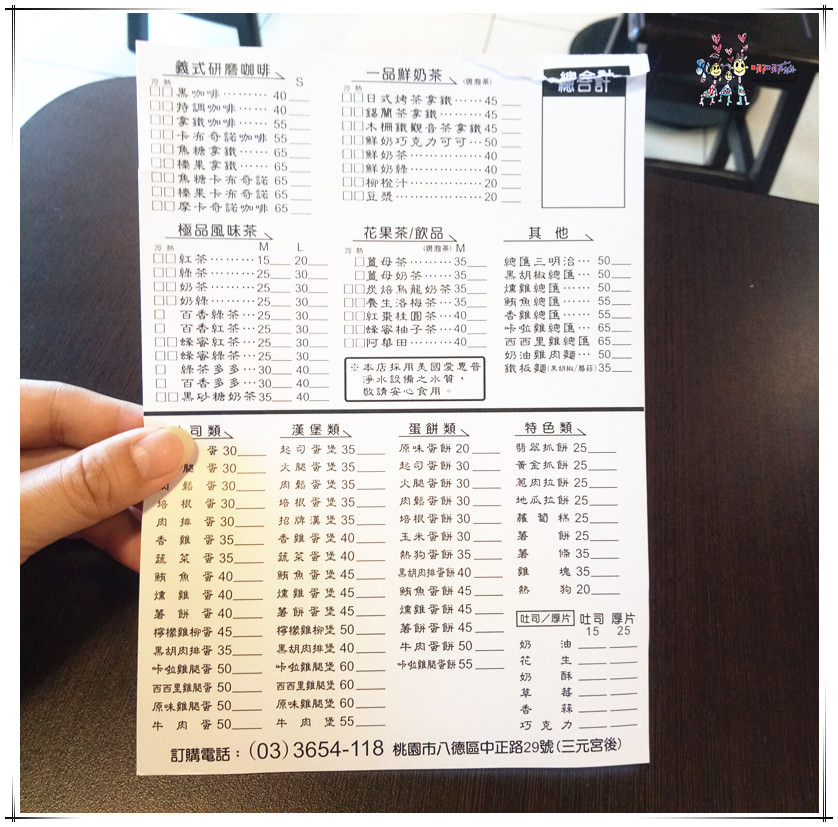 義式研磨咖啡
冷 熱 S
□□黑咖啡‥‥‥ 40
□□特調咖啡‥‥ 40
□□拿鐵咖啡‥‥ 55
□□卡布奇諾咖啡 55
□□焦糖拿鐵‥‥ 65
□□榛果拿鐵‥‥ 65
□□焦糖卡布奇諾 65
□□榛果卡布奇諾 65
□□摩卡奇諾咖啡 65
一品鮮奶茶 (現泡茶)
冷 熱
□□日式烤茶拿鐵‥‥ 45
□□錫蘭茶拿鐵‥‥‥ 45
□□木柵鐵觀音茶拿鐵 45
□□鮮奶巧克力可可‥ 50
□□鮮奶茶‥‥‥‥ 40
□□鮮奶綠‥‥‥‥ 40
□□柳橙汁‥‥‥‥ 20
□□豆漿‥‥‥‥‥ 20
總合計
極品風味茶
冷 熱 M L
□□紅茶‥‥‥ 15 20
□□綠茶‥‥‥ 25 30
□□奶茶‥‥‥ 25 30
□□奶綠‥‥‥ 25 30
□ 百香綠茶‥ 25 30
□ 百香紅茶‥ 25 30
□□蜂蜜紅茶‥ 25 30
□□蜂蜜綠茶‥ 25 30
□ 綠茶多多‥ 30 40
□ 百香多多‥ 30 40
□□黑砂糖奶茶 35 40
花果茶/飲品
冷 熱 (現泡茶) M
□薑母茶‥‥‥ 35
□薑母奶茶‥‥ 35
□□炭焙烏龍奶茶 35
□□養生洛梅茶‥ 35
□□紅棗桂圓茶‥ 40
□□蜂蜜柚子茶‥ 40
□□阿華田‥‥‥ 40
※本店採用美國愛惠普
淨水設備之水質，
敬請安心食用。
其 他
總匯三明治‥ 50
黑胡椒總匯‥ 50
燻雞總匯‥‥ 50
鮪魚總匯‥‥ 55
香雞總匯‥‥ 55
咔啦雞總匯‥ 65
西西里雞總匯 65
奶油雞肉麵‥ 50
鐵板麵(黑胡椒/蘑菇) 35
司類
蛋 30
腿 蛋 30
鬆 蛋 30
培根蛋 30
肉排蛋 30
香雞蛋 35
蔬菜蛋 35
鮪魚蛋 40
燻雞蛋 40
薯餅蛋 40
檸檬雞柳蛋 45
黑胡肉排蛋 35
咔啦雞腿蛋 50
西西里雞腿蛋 50
原味雞腿蛋 50
牛肉蛋 50
漢堡類
起司蛋堡 35
火腿蛋堡 35
肉鬆蛋堡 35
培根蛋堡 35
招牌漢堡 35
香雞蛋堡 40
蔬菜蛋堡 40
鮪魚蛋堡 45
燻雞蛋堡 45
薯餅蛋堡 45
檸檬雞柳堡 50
黑胡肉排堡 40
咔啦雞腿堡 60
西西里雞腿堡 60
原味雞腿堡 60
牛肉堡 55
蛋餅類
原味蛋餅 20
起司蛋餅 30
火腿蛋餅 30
肉鬆蛋餅 30
培根蛋餅 30
玉米蛋餅 30
熱狗蛋餅 35
黑胡肉排蛋餅 40
鮪魚蛋餅 45
燻雞蛋餅 45
薯餅蛋餅 45
牛肉蛋餅 50
咔啦雞腿蛋餅 55
特色類
翡翠抓餅 25
黃金抓餅 25
蔥肉拉餅 25
地瓜拉餅 25
蘿蔔糕 25
薯餅 25
薯條 35
雞塊 35
熱狗 20
吐司/厚片 吐司 厚片
15 25
奶油
花生
奶酥
草莓
香蒜
巧克力
訂購電話：(03)3654-118 桃園市八德區中正路29號(三元宮後)